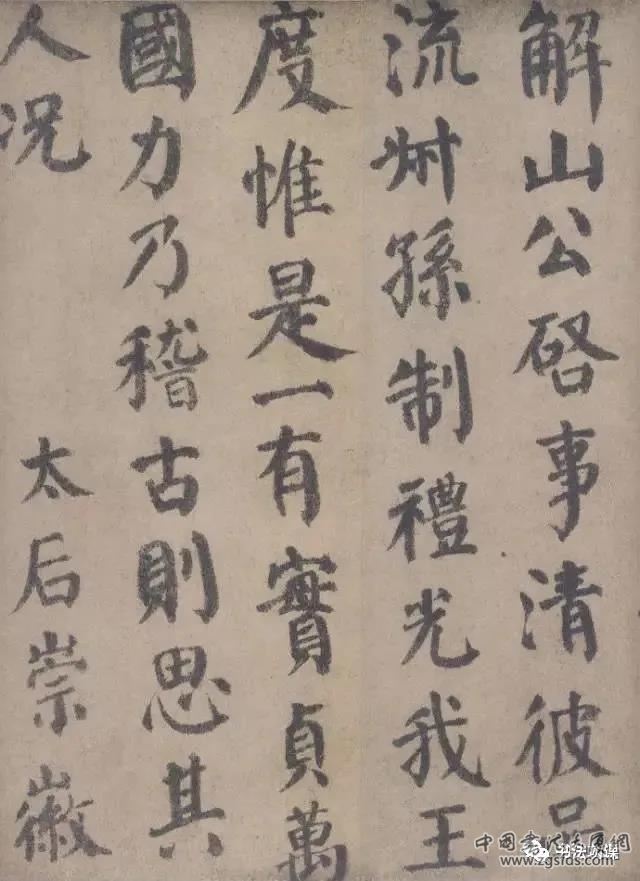 解山公啓事清彼品
流州孫制禮光我王
度惟是一有實貞萬
國力乃稽古則思其
人况 太后崇徽
中国书法高清网
书法微课
www.zgsfds.com